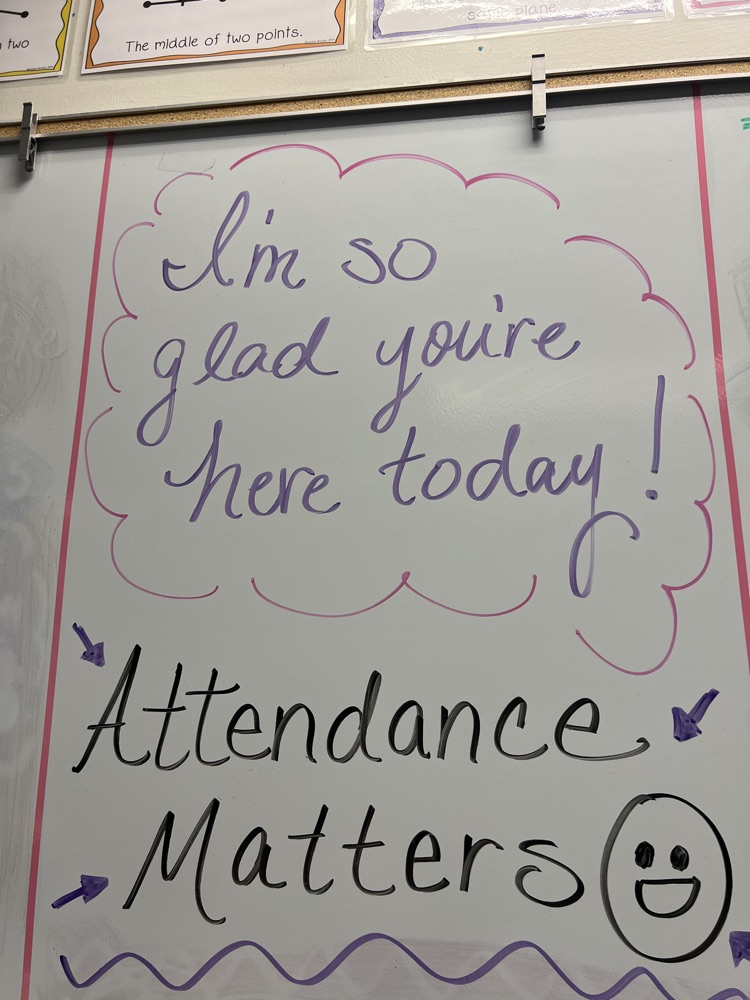 two
The middle of two points.
same plane.
I'm so
glad you're
here today!
Attendance
Matters